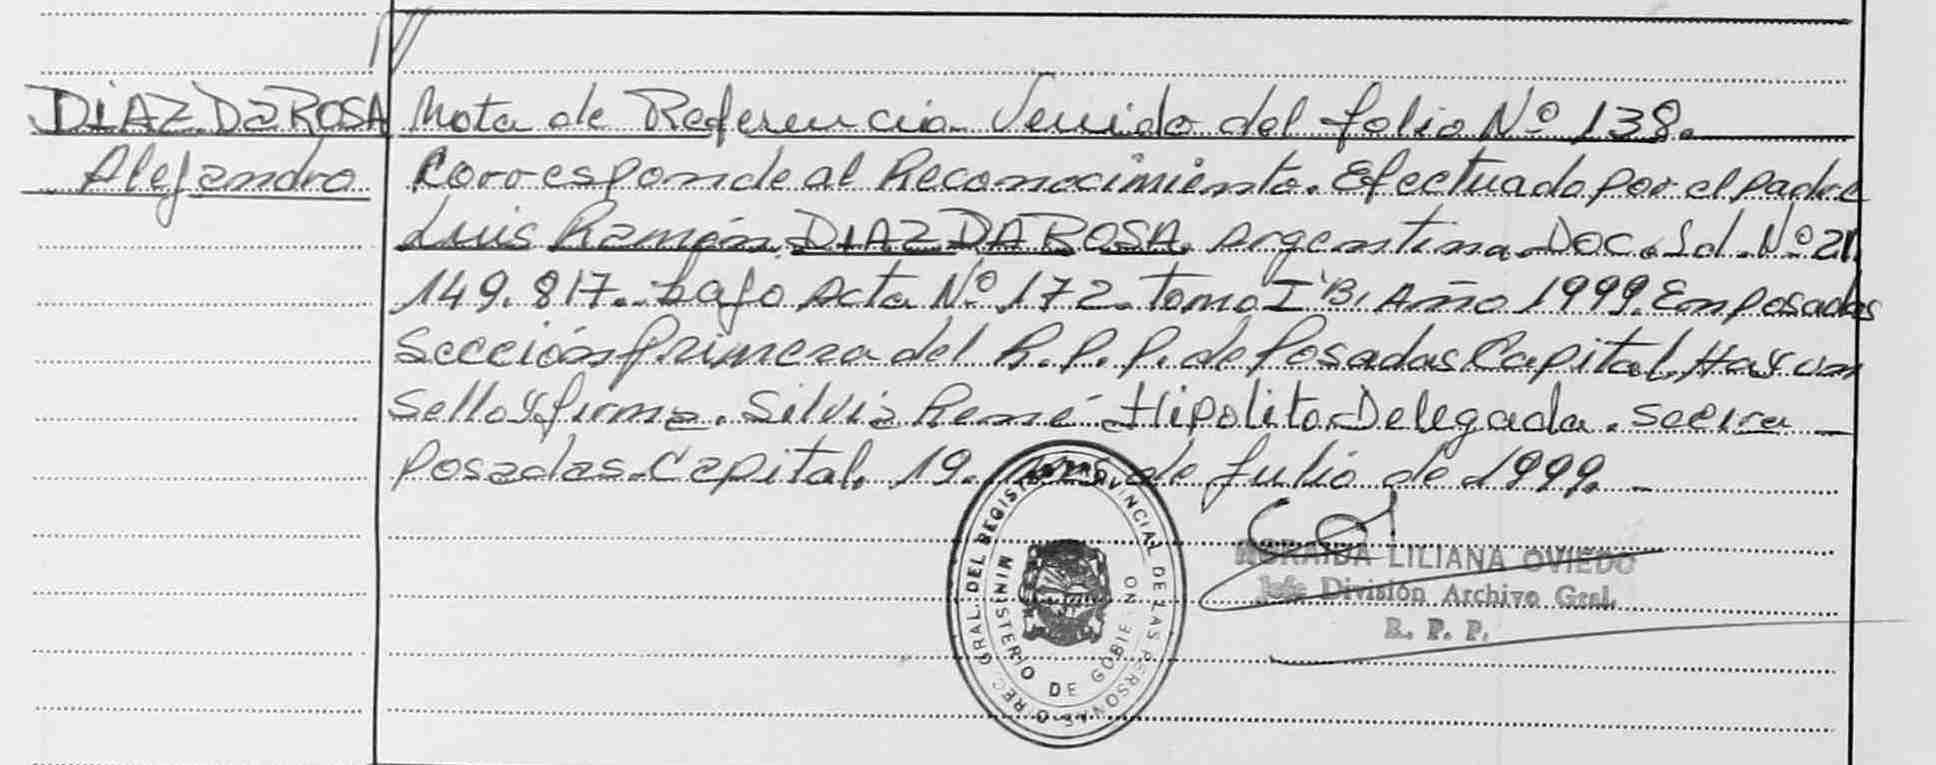 DIAZ DA ROSA
Alejandro
Nota de Referencia Venido del folio Nº 138.
Corresponde al Reconocimiento. Efectuado por el padre
Luis Ramón DIAZ DA ROSA. Argentina. Doc. Id. Nº 21.
149.817. bajo Acta Nº 172. Tomo I "B" Año 1999. En posadas
Sección primera del R.P.P. de Posadas Capital. Hay un
Sello y firma. Silvia René Hipolito Delegada.
Posadas. Capital. 19. de Julio de 1999. -
LILIANA OVIEDO
Jefe División Archivo Gral.
R. P. P.
REC. GRAL. DEL REGISTRO PROVINCIAL DE LAS PERSONAS
MINISTERIO DE GOBIERNO